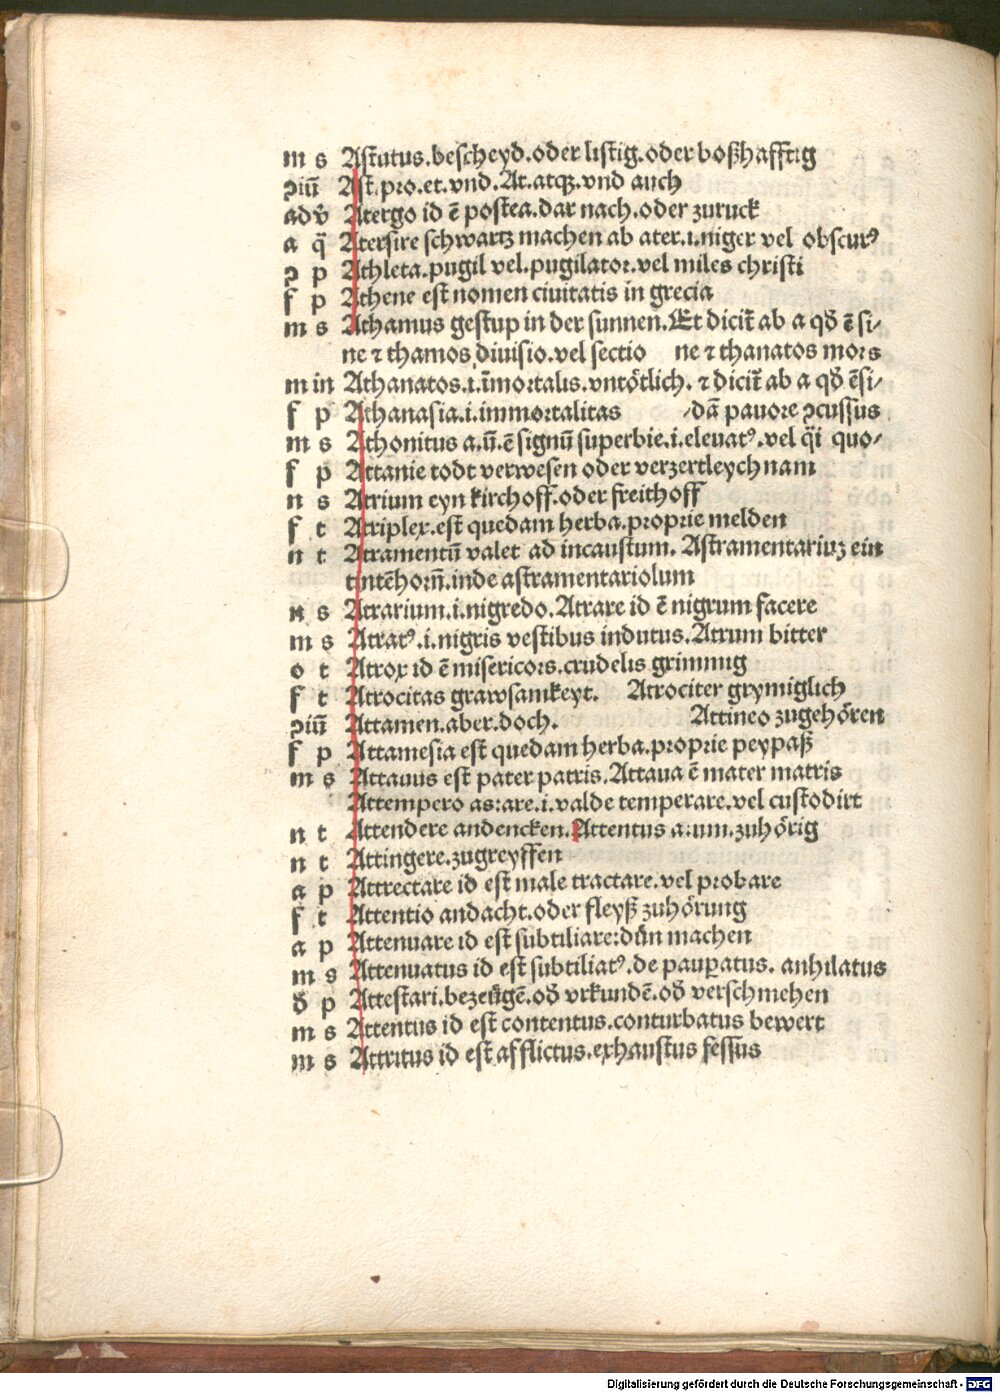 m s Astutus.bescheyd.oder listig.oder boßhafftig
ↄiū Ast.pro.et.vnd.At.atqꝫ.vnd auch
adv̄ Atergo id ē postea.dar nach.oder zuruck
a q̄ Atersire schwartz machen ab ater.i.niger vel obscurꝰ
ↄ p Athleta.pugil vel.pugilator.vel miles christi
f p Athene est nomen ciuitatis in grecia
m s Athamus gestup in der sunnen.Et dicit̄ ab a qd̄ ē si⸗
ne ⁊ thamos diuisio.vel sectio ne ⁊ thanatos mors
m in Athanatos.i.īmortalis.vntötlich. ⁊ dicit̄ ab a qd̄ ē si⸗
f p Athanasia.i.immortalitas ⸗dā pauore ↄcussus
m s Athonitus a.ū.ē signū superbie.i.eleuatꝰ.vel q̄i quo⸗
f p Attanie todt verwesen oder verzertleychnam
n s Atrium eyn kirchoff.oder freithoff
f t Atriplex.est quedam herba.proprie melden
n t Atramentū valet ad incaustum. Astramentariuꝫ ein
tintēhorn̄.inde astramentariolum
n s Atrarium.i.nigredo.Atrare id ē nigrum facere
m s Atratꝰ.i.nigris vestibus indutus.Atrum bitter
o t Atrox id ē misericors.crudelis grimmig
f t Atrocitas grawsamkeyt. Atrociter grymiglich
ↄiū Attamen.aber.doch. Attineo zugehören
f p Attamesia est quedam herba.proprie peypaß
m s Attauus est pater patris.Attaua ē mater matris
Attempero as:are.i.valde temperare.vel custodirt
n t Attendere andencken.Attentus a:um.zuhörig
n t Attingere.zugreyffen
a p Attrectare id est male tractare.vel probare
f t Attentio andacht.oder fleyß zuhörung
a p Attenuare id est subtiliare:dün machen
m s Attenuatus id est subtiliatꝰ.de pauꝑatus. anhilatus
d̄ p Attestari.bezeügē.od̄ vrkundē.od̄ verschmehen
m s Attentus id est contentus.conturbatus bewert
m s Attritus id est afflictus.exhaustus fessus
Digitalisierung gefördert durch die Deutsche Forschungsgemeinschaft - DFG